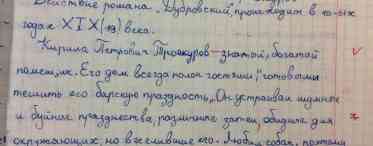 Действие романа „Дубровский" происходит в 10-ых
годах XIX(19) века.
Кирила Петрович Троекуров – знатый, богатый
помещик. Его дом всегда полон гостями, „готовыми
тешить его барскую праздность„. Он устраивал шумные
и буйные празднества, различные затеи, обидные для
окружающих, но веселившие его. Любил собак, поэтому